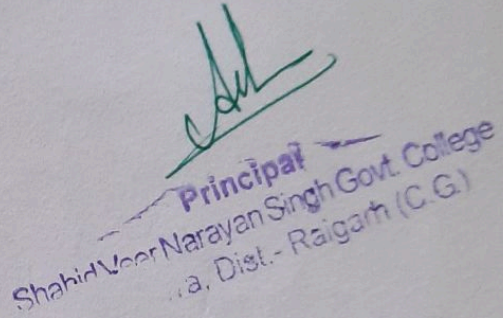 Principal
Shahid Veer Narayan Singh Govt. College
a, Dist.- Raigarh (C.G.)